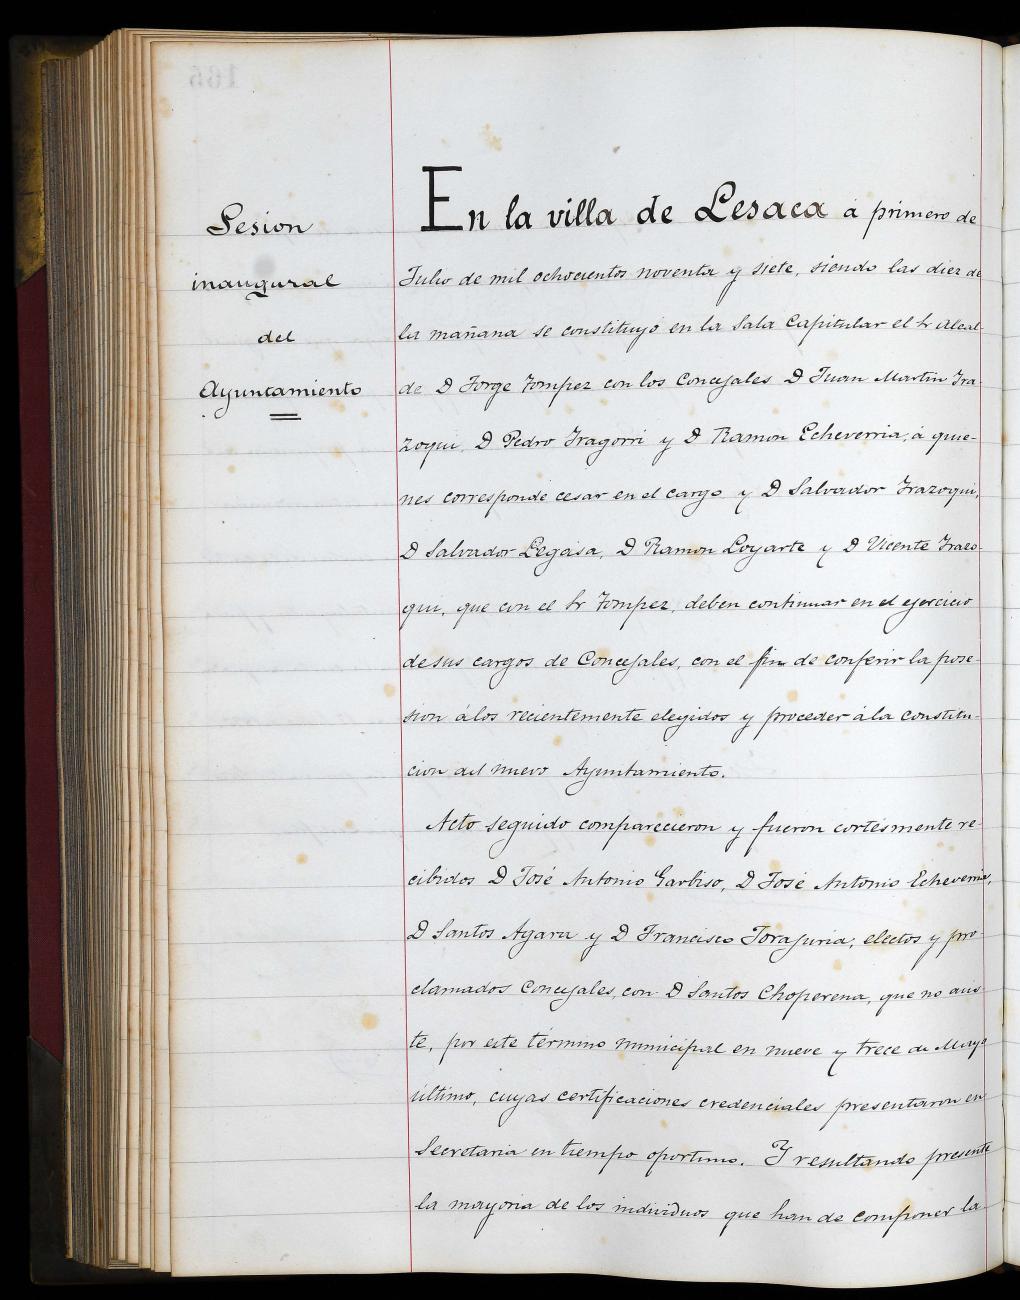 Sesion
inaugural
del
Ayuntamiento
En la villa de Lesaca á primero de
Julio de mil ochocientos noventa y siete, siendo las diez de
la mañana se constituyó en la Sala Capitular el Sr Alcal-
de D Jorge Tompez con los Concejales D Juan Martin Ira-
zoqui, D Pedro Iragorri y D Ramon Echeverria, á quie-
nes corresponde cesar en el cargo y D Salvador Irazoqui,
D Salvador Legasa, D Ramon Loyarte y D Vicente Irazo-
qui, que con el Sr Tompez, deben continuar en el ejercicio
de sus cargos de Concejales, con el fin de conferir la pose-
sion á los recientemente elegidos y proceder á la constitu-
cion del nuevo Ayuntamiento.
Acto seguido comparecieron y fueron cortésmente re-
cibidos D José Antonio Garbiso, D José Antonio Echeverria,
D Santos Agara y D Francisco Torajuria, electos y pro-
clamados Concejales, con D Santos Choperena, que no asis-
te, por este término municipal en nueve y trece de Mayo
último, cuyas certificaciones credenciales presentaron en
Secretaria en tiempo oportuno. Y resultando presente
la mayoria de los individuos que han de componer la